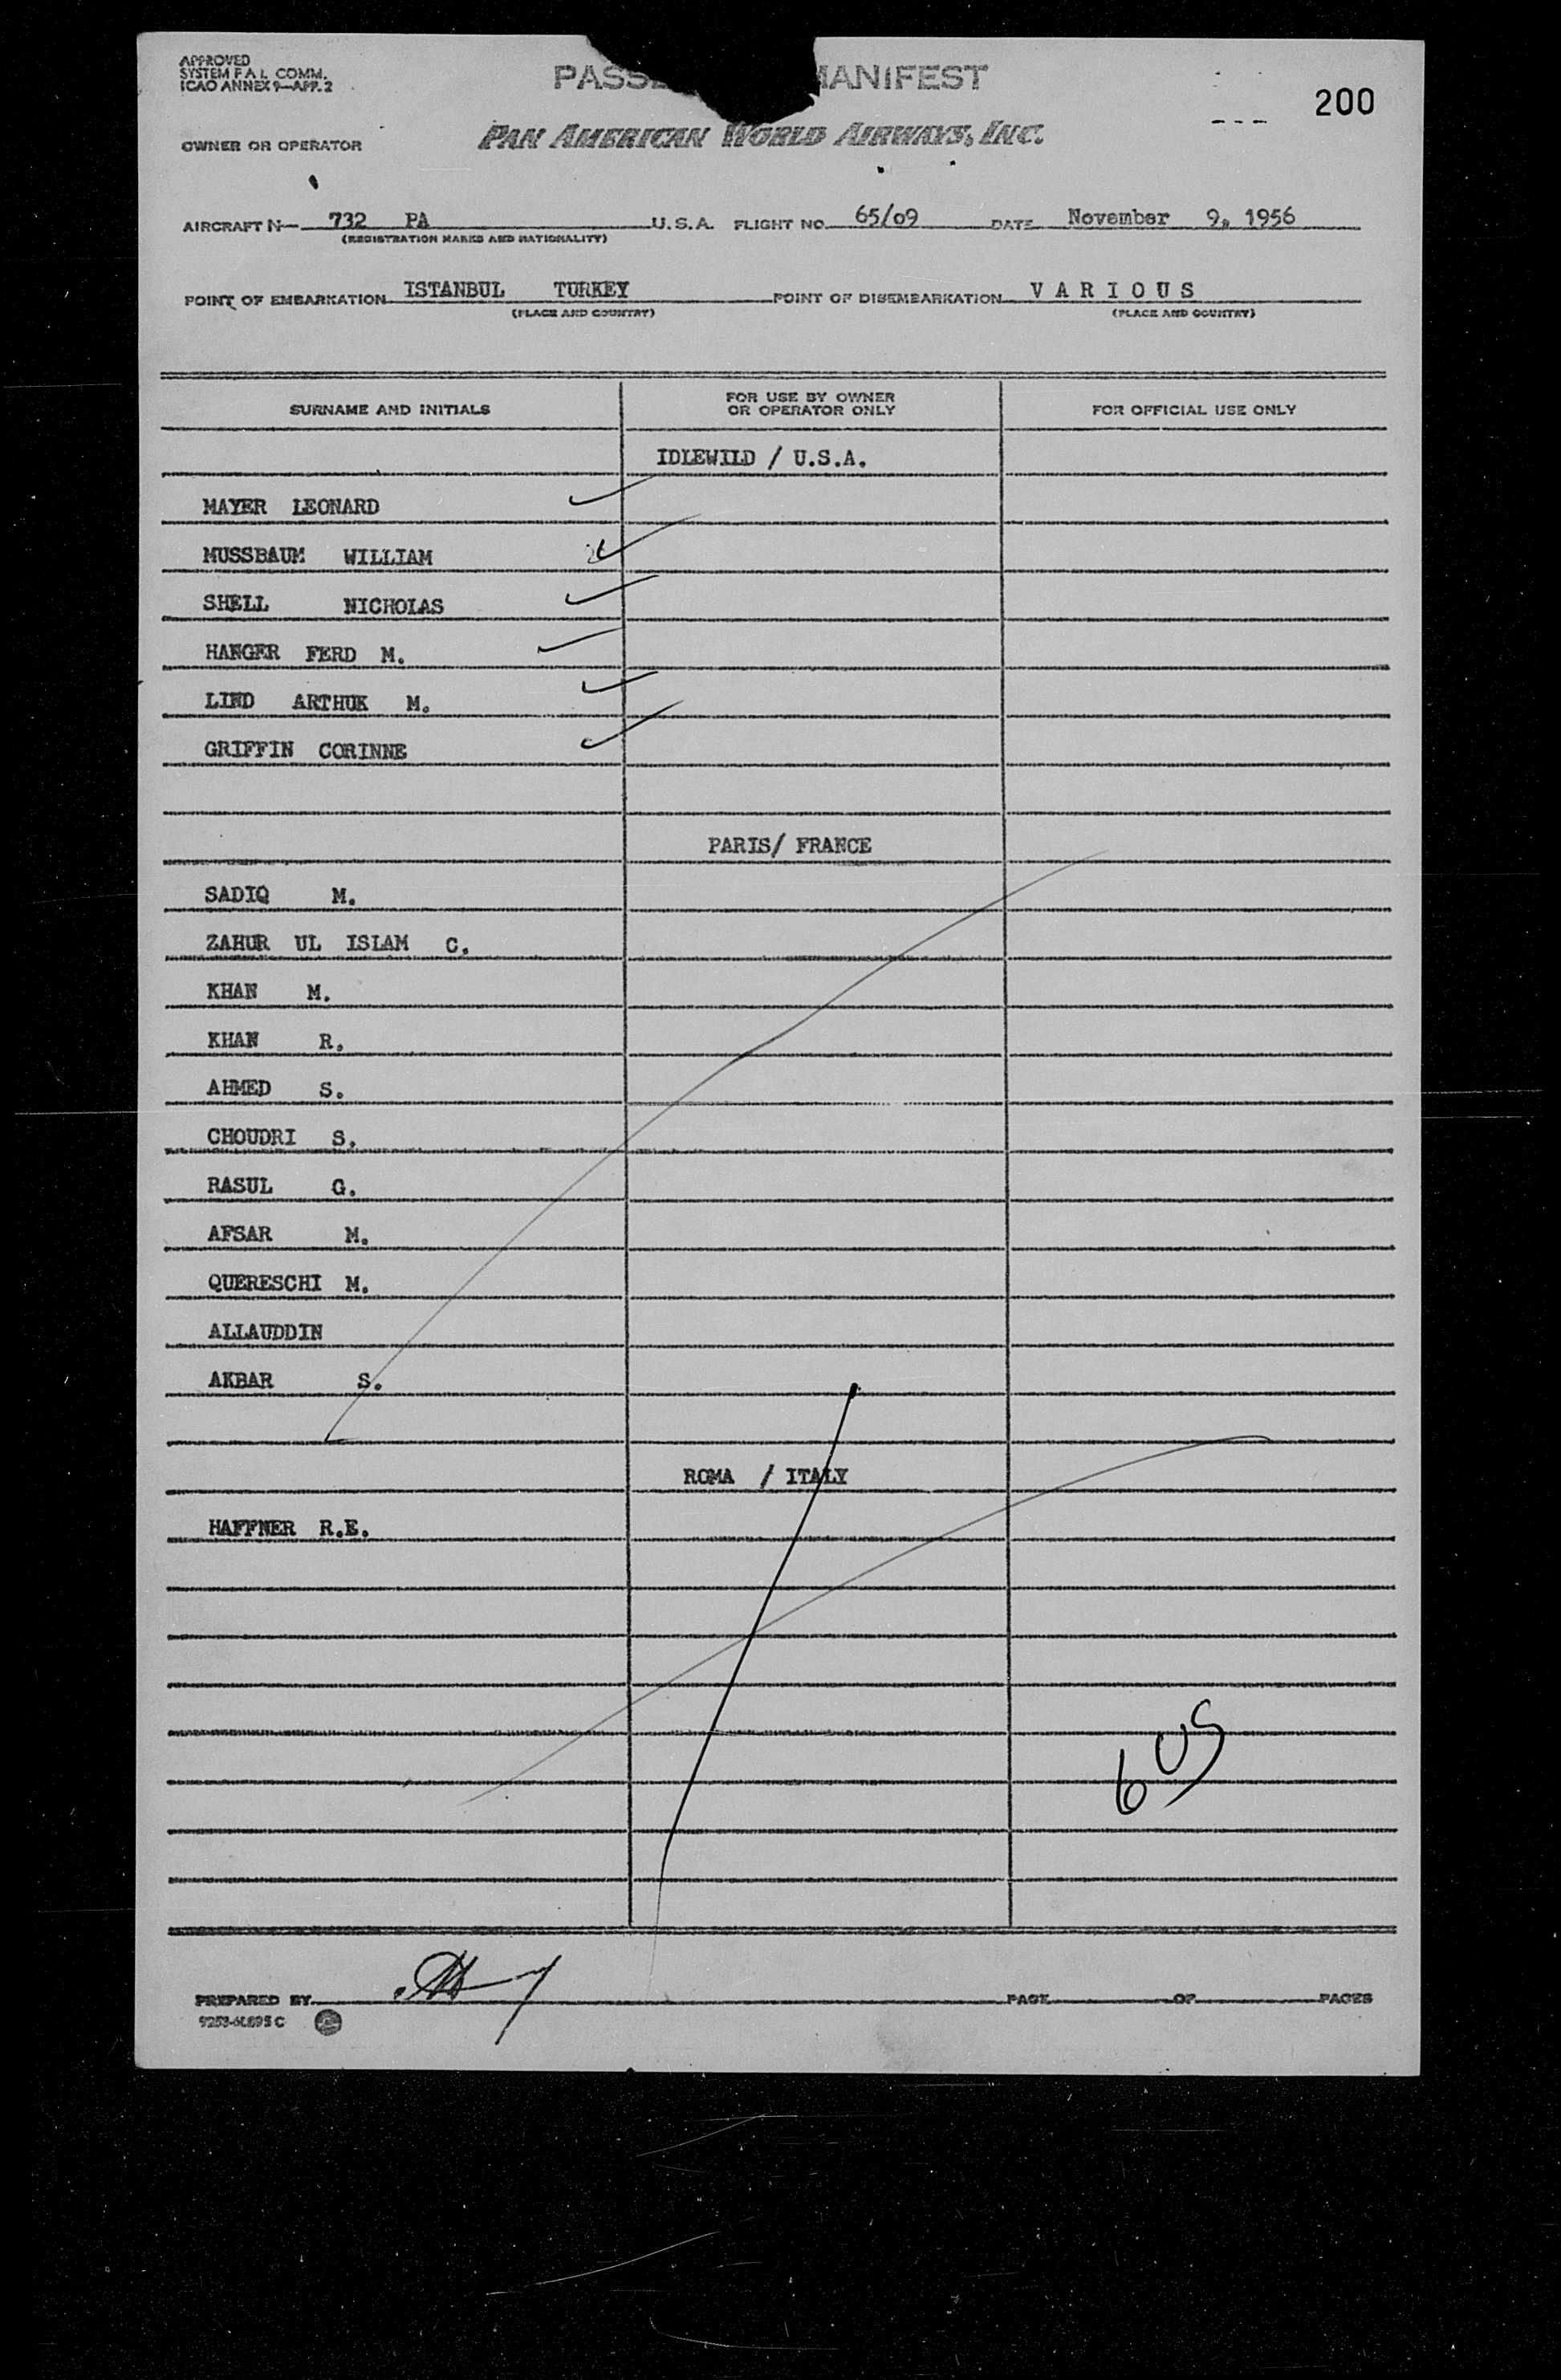 APPROVED
SYSTEM F A L COMM.
ICAO ANNEX 9—APP. 2
PASSE MANIFEST
200
OWNER OR OPERATOR
PAN AMERICAN WORLD AIRWAYS, INC.
AIRCRAFT N— 732 PA U.S.A. FLIGHT NO. 65/09 DATE November 9, 1956
(REGISTRATION MARKS AND NATIONALITY)
POINT OF EMBARKATION ISTANBUL TURKEY POINT OF DISEMBARKATION V A R I O U S
(PLACE AND COUNTRY) (PLACE AND COUNTRY)
SURNAME AND INITIALS
FOR USE BY OWNER
OR OPERATOR ONLY
FOR OFFICIAL USE ONLY
IDLEWILD / U.S.A.
MAYER LEONARD
MUSSBAUM WILLIAM
SHELL NICHOLAS
HANGER FERD M.
LIND ARTHUK M.
GRIFFIN CORINNE
PARIS/ FRANCE
SADIQ M.
ZAHUR UL ISLAM C.
KHAN M.
KHAN R.
AHMED S.
CHOUDRI S.
RASUL G.
AFSAR M.
QUERESCHI M.
ALLAUDDIN
AKBAR S.
ROMA / ITALY
HAFFNER R.E.
6 US
PREPARED BY PAGE OF PAGES